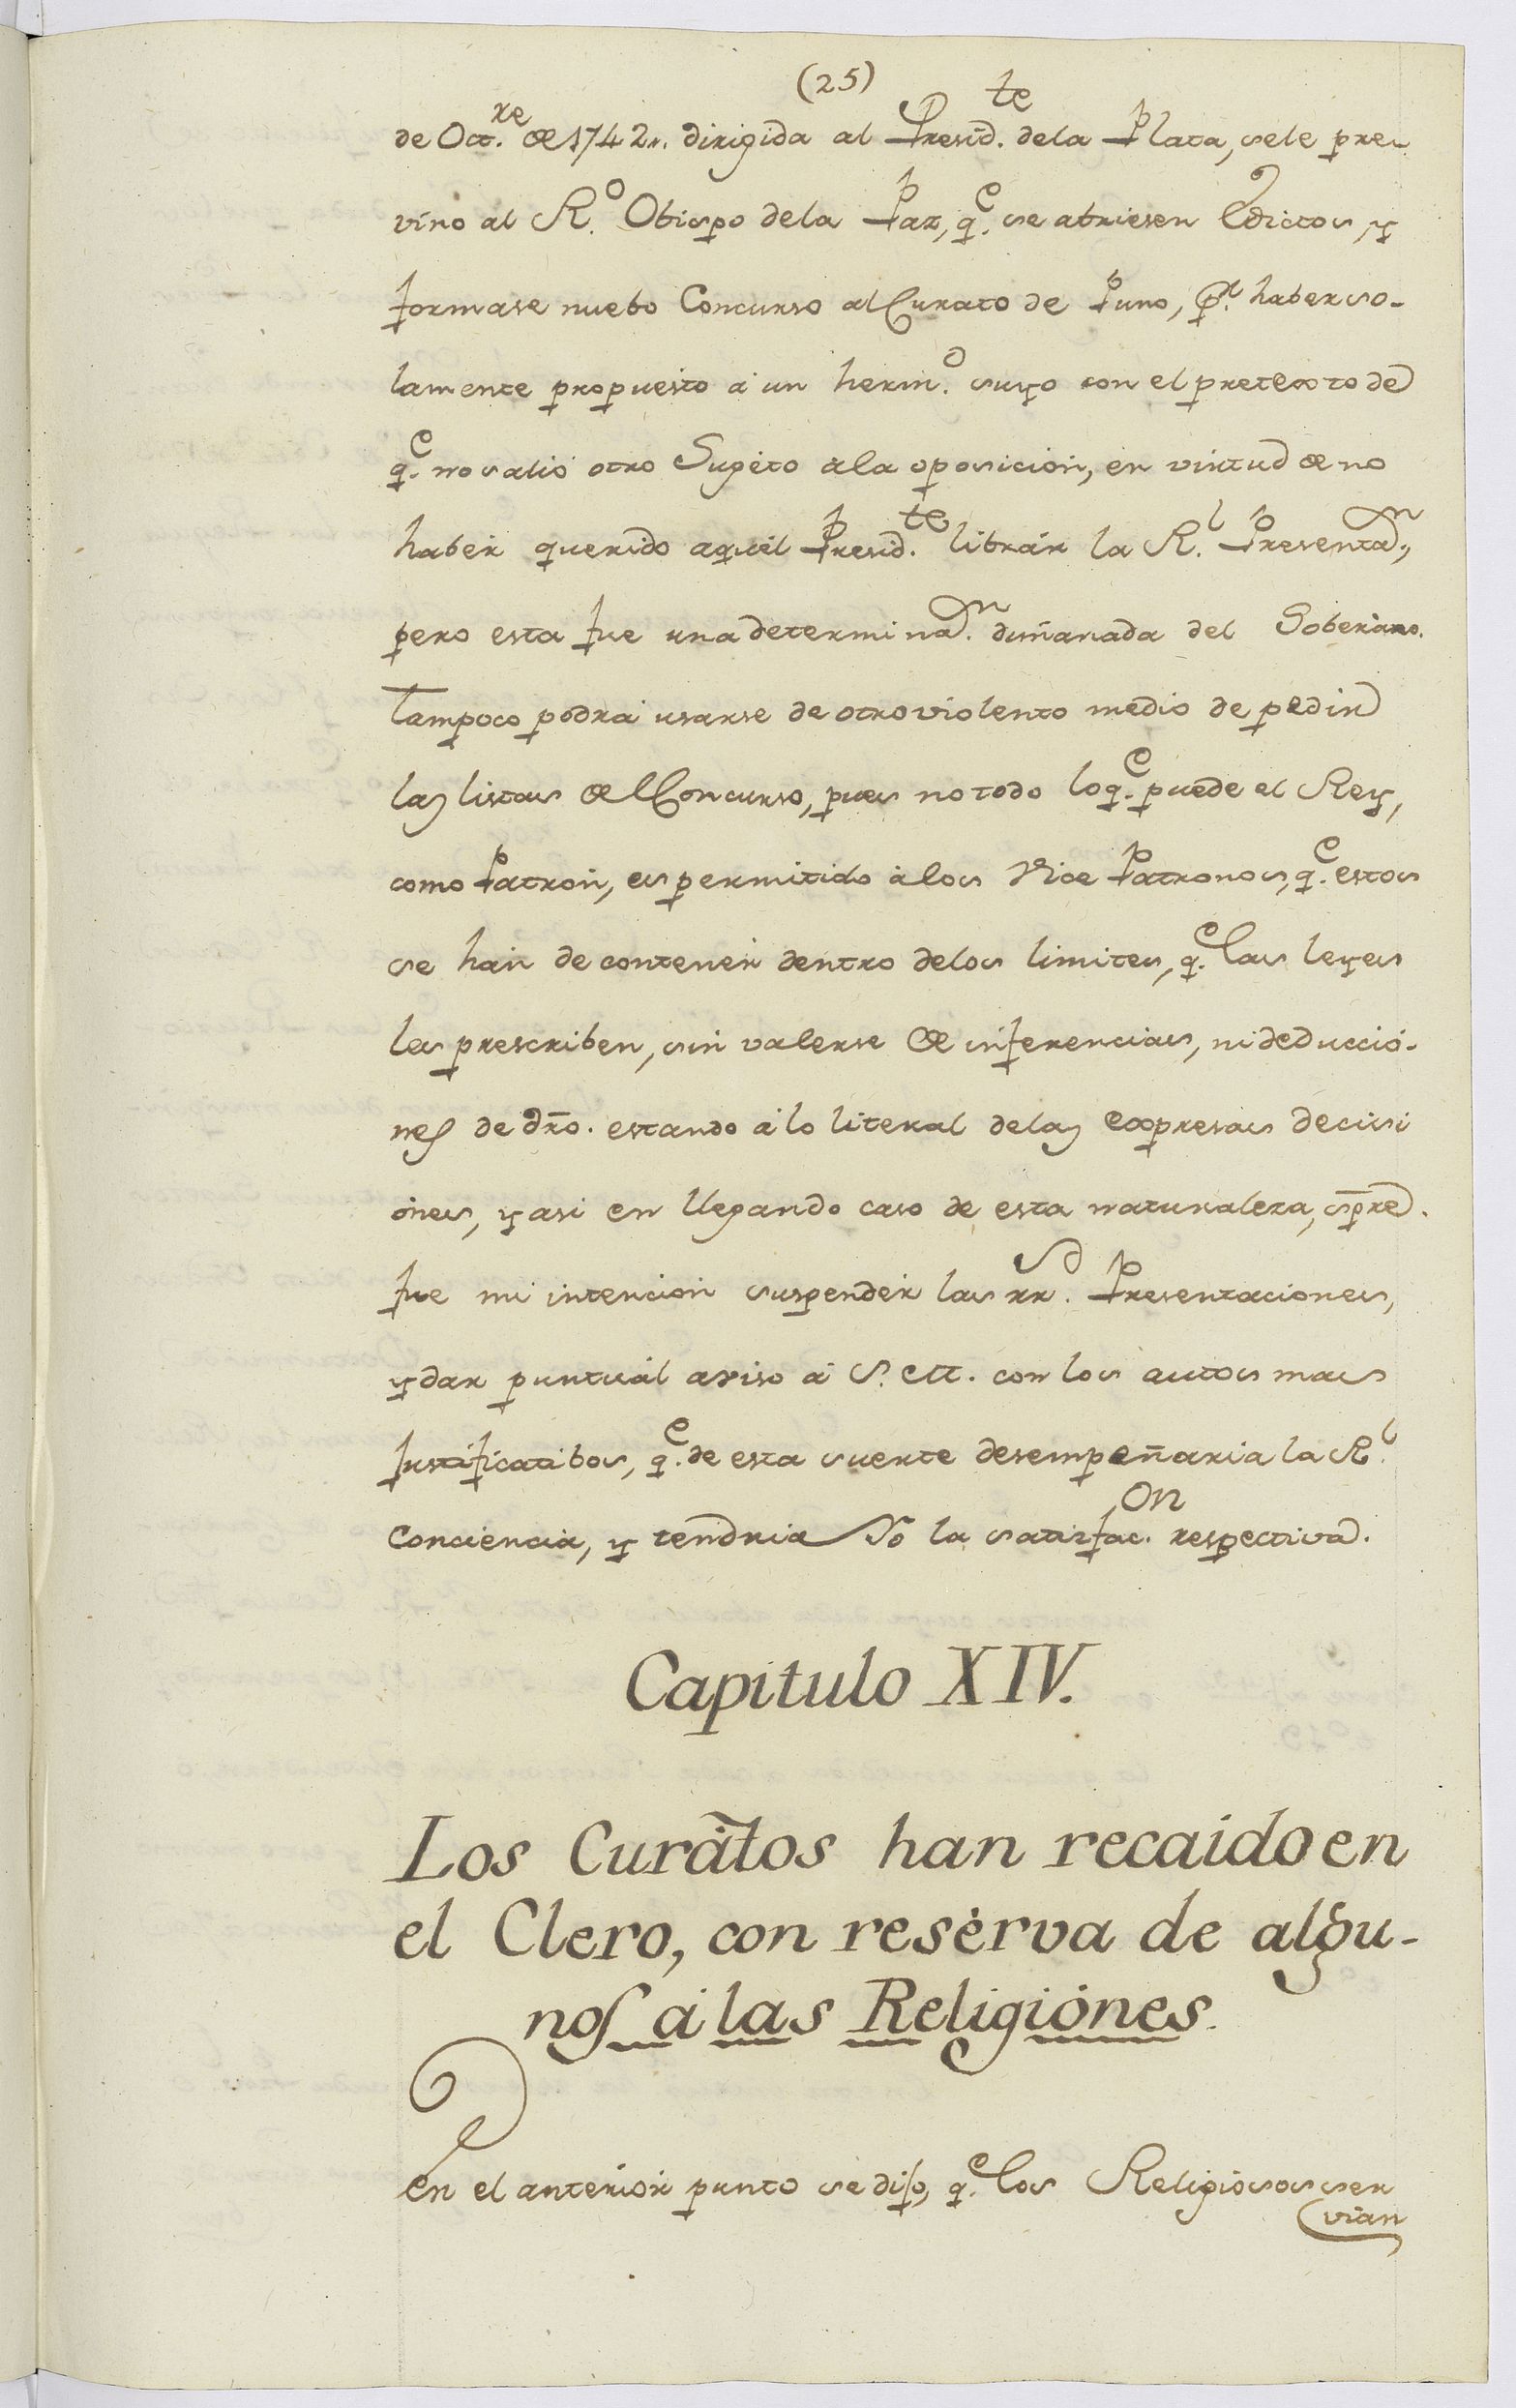 (25)
de Oct.re de 1742,, dirigida al Presid.te dela Plata, sele pre-
vino al R.o Obispo dela Paz, q.e se abriesen Edictos, y
formase nuebo Concurso al Curato de Puno, p.r haber so-
lamente propuesto á un herm.o suyo con el pretexto de
q.e no salió otro Sugeto á la oposicion, en virtud de no
haber querido aquel Presid.te librar la R.l Presenta.n,
pero esta fue una determina.n dimanada del Soberano.
Tampoco podrá usarse de otro violento medio de pedir
las listas del Concurso, pues no todo loq.e puede el Rey,
como Patron, es permitido á los Vice Patronos, q.e estos
se han de contener dentro delos limites, q.e las leyes
les prescriben, sin valerse de inferencias, ni deduccio-
nes de dr̃o. estando á lo literal delas expresas decisi
ones, y asi en llegando caso de esta naturaleza, sp̃re.
fue mi intencion suspender las rr.s Presentaciones,
y dar puntual aviso á S. M. con los autos mas
justificatibos, q.e de esta suerte desempeñaria la R.l
Conciencia, y tendria Yo la satisfac.on respectiva.
Capitulo XIV.
Los Curatos han recaido en
el Clero, con reserva de algu-
nos á las Religiones.
En el anterior punto se dijo, q.e los Religiosos ser
vian